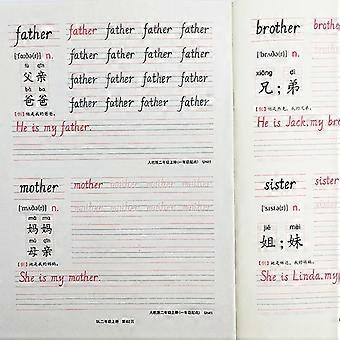 father father father father father
['fɑːðə(r)] n. father father father father
fù qīn
父亲 father father father father
bà ba
爸爸 father father father father
【例】他是我的爸爸。
He is my father.
人教版二年级上册(一年级起点) Unit1
mother mother mother mother mother
['mʌðə(r)] n.
mā mā
妈妈
mǔ qīn
母亲
【例】她是我的妈妈。
She is my mother.
人教版二年级上册(一年级起点) Unit1
二年级上册 第02页
brother
['brʌðə(r)] n.
xiōng dì
兄；弟
He is Jack, my bro
sister
['sɪstə(r)] n.
jiě mèi
姐；妹
She is Linda, my